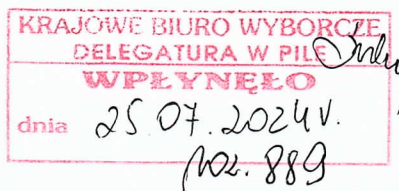 KRAJOWE BIURO WYBORCZE
DELEGATURA W PILE
WPŁYNĘŁO
dnia 25.07.2024r.
poz. 889